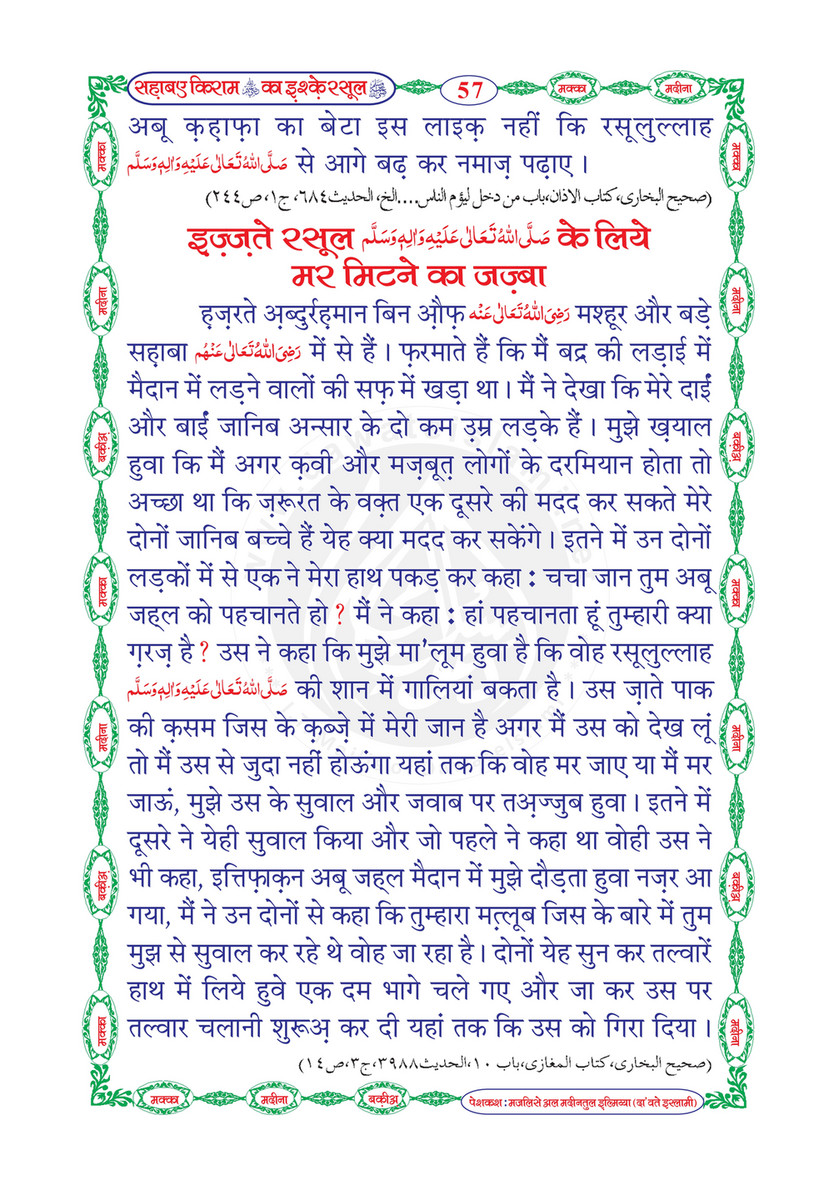 सह़ाबए किराम का इ़श्क़े रसूल
57
मक्का
मदीना
अबू क़ह़ाफ़ा का बेटा इस लाइक़ नहीं कि रसूलुल्लाह
صَلَّى اللهُ تَعَالٰى عَلَيْهِ وَاٰلِهٖ وَسَلَّم से आगे बढ़ कर नमाज़ पढ़ाए ।
(صحیح البخاری،کتاب الاذان،باب من دخل لیؤم الناس....الخ، الحدیث ٦٨٤، ج١، ص٢٤٤)
इ़ज़्ज़ते रसूल صَلَّى اللهُ تَعَالٰى عَلَيْهِ وَاٰلِهٖ وَسَلَّم के लिये
मर मिटने का जज़्बा
ह़ज़रते अ़ब्दुर्रह़मान बिन औ़फ़ رَضِىَ اللهُ تَعَالٰى عَنْه मश्हूर और बड़े
सह़ाबा رَضِىَ اللهُ تَعَالٰى عَنْهُم में से हैं । फ़रमाते हैं कि मैं बद्र की लड़ाई में
मैदान में लड़ने वालों की सफ़ में खड़ा था । मैं ने देखा कि मेरे दाईं
और बाईं जानिब अन्सार के दो कम उ़म्र लड़के हैं । मुझे ख़याल
हुवा कि मैं अगर क़वी और मज़बूत़ लोगों के दरमियान होता तो
अच्छा था कि ज़रूरत के वक़्त एक दूसरे की मदद कर सकते मेरे
दोनों जानिब बच्चे हैं येह क्या मदद कर सकेंगे । इतने में उन दोनों
लड़कों में से एक ने मेरा हाथ पकड़ कर कहा : चचा जान तुम अबू
जह्ल को पहचानते हो ? मैं ने कहा : हां पहचानता हूं तुम्हारी क्या
ग़रज़ है ? उस ने कहा कि मुझे मा'लूम हुवा है कि वोह रसूलुल्लाह
صَلَّى اللهُ تَعَالٰى عَلَيْهِ وَاٰلِهٖ وَسَلَّم की शान में गालियां बकता है । उस ज़ाते पाक
की क़सम जिस के क़ब्ज़े में मेरी जान है अगर मैं उस को देख लूं
तो मैं उस से जुदा नहीं होऊंगा यहां तक कि वोह मर जाए या मैं मर
जाऊं, मुझे उस के सुवाल और जवाब पर तअ़ज्जुब हुवा । इतने में
दूसरे ने येही सुवाल किया और जो पहले ने कहा था वोही उस ने
भी कहा, इत्तिफ़ाक़न अबू जह्ल मैदान में मुझे दौड़ता हुवा नज़र आ
गया, मैं ने उन दोनों से कहा कि तुम्हारा मत़्लूब जिस के बारे में तुम
मुझ से सुवाल कर रहे थे वोह जा रहा है । दोनों येह सुन कर तल्वारें
हाथ में लिये हुवे एक दम भागे चले गए और जा कर उस पर
तल्वार चलानी शुरूअ़ कर दी यहां तक कि उस को गिरा दिया ।
(صحیح البخاری،کتاب المغازی،باب ١٠،الحدیث٣٩٨٨،ج٣،ص١٤)
मक्का
मदीना
बक़ीअ़
मक्का
मदीना
बक़ीअ़
मक्का
मक्का
मदीना
बक़ीअ़
मक्का
मदीना
बक़ीअ़
मदीना
मक्का
मदीना
बक़ीअ़
पेशकश : मजलिसे अल मदीनतुल इ़ल्मिय्या (दा'वते इस्लामी)